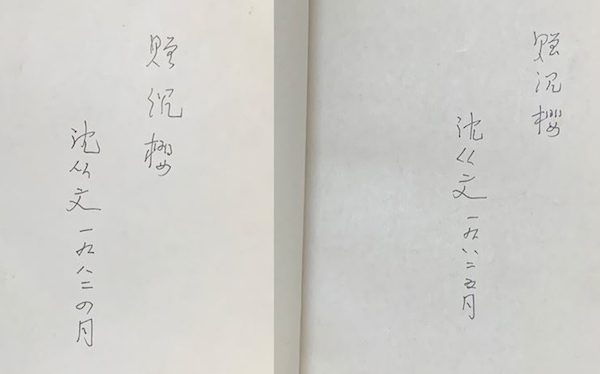 赠沉樱
沈从文一九八二四月
赠沉樱
沈从文一九八二五月